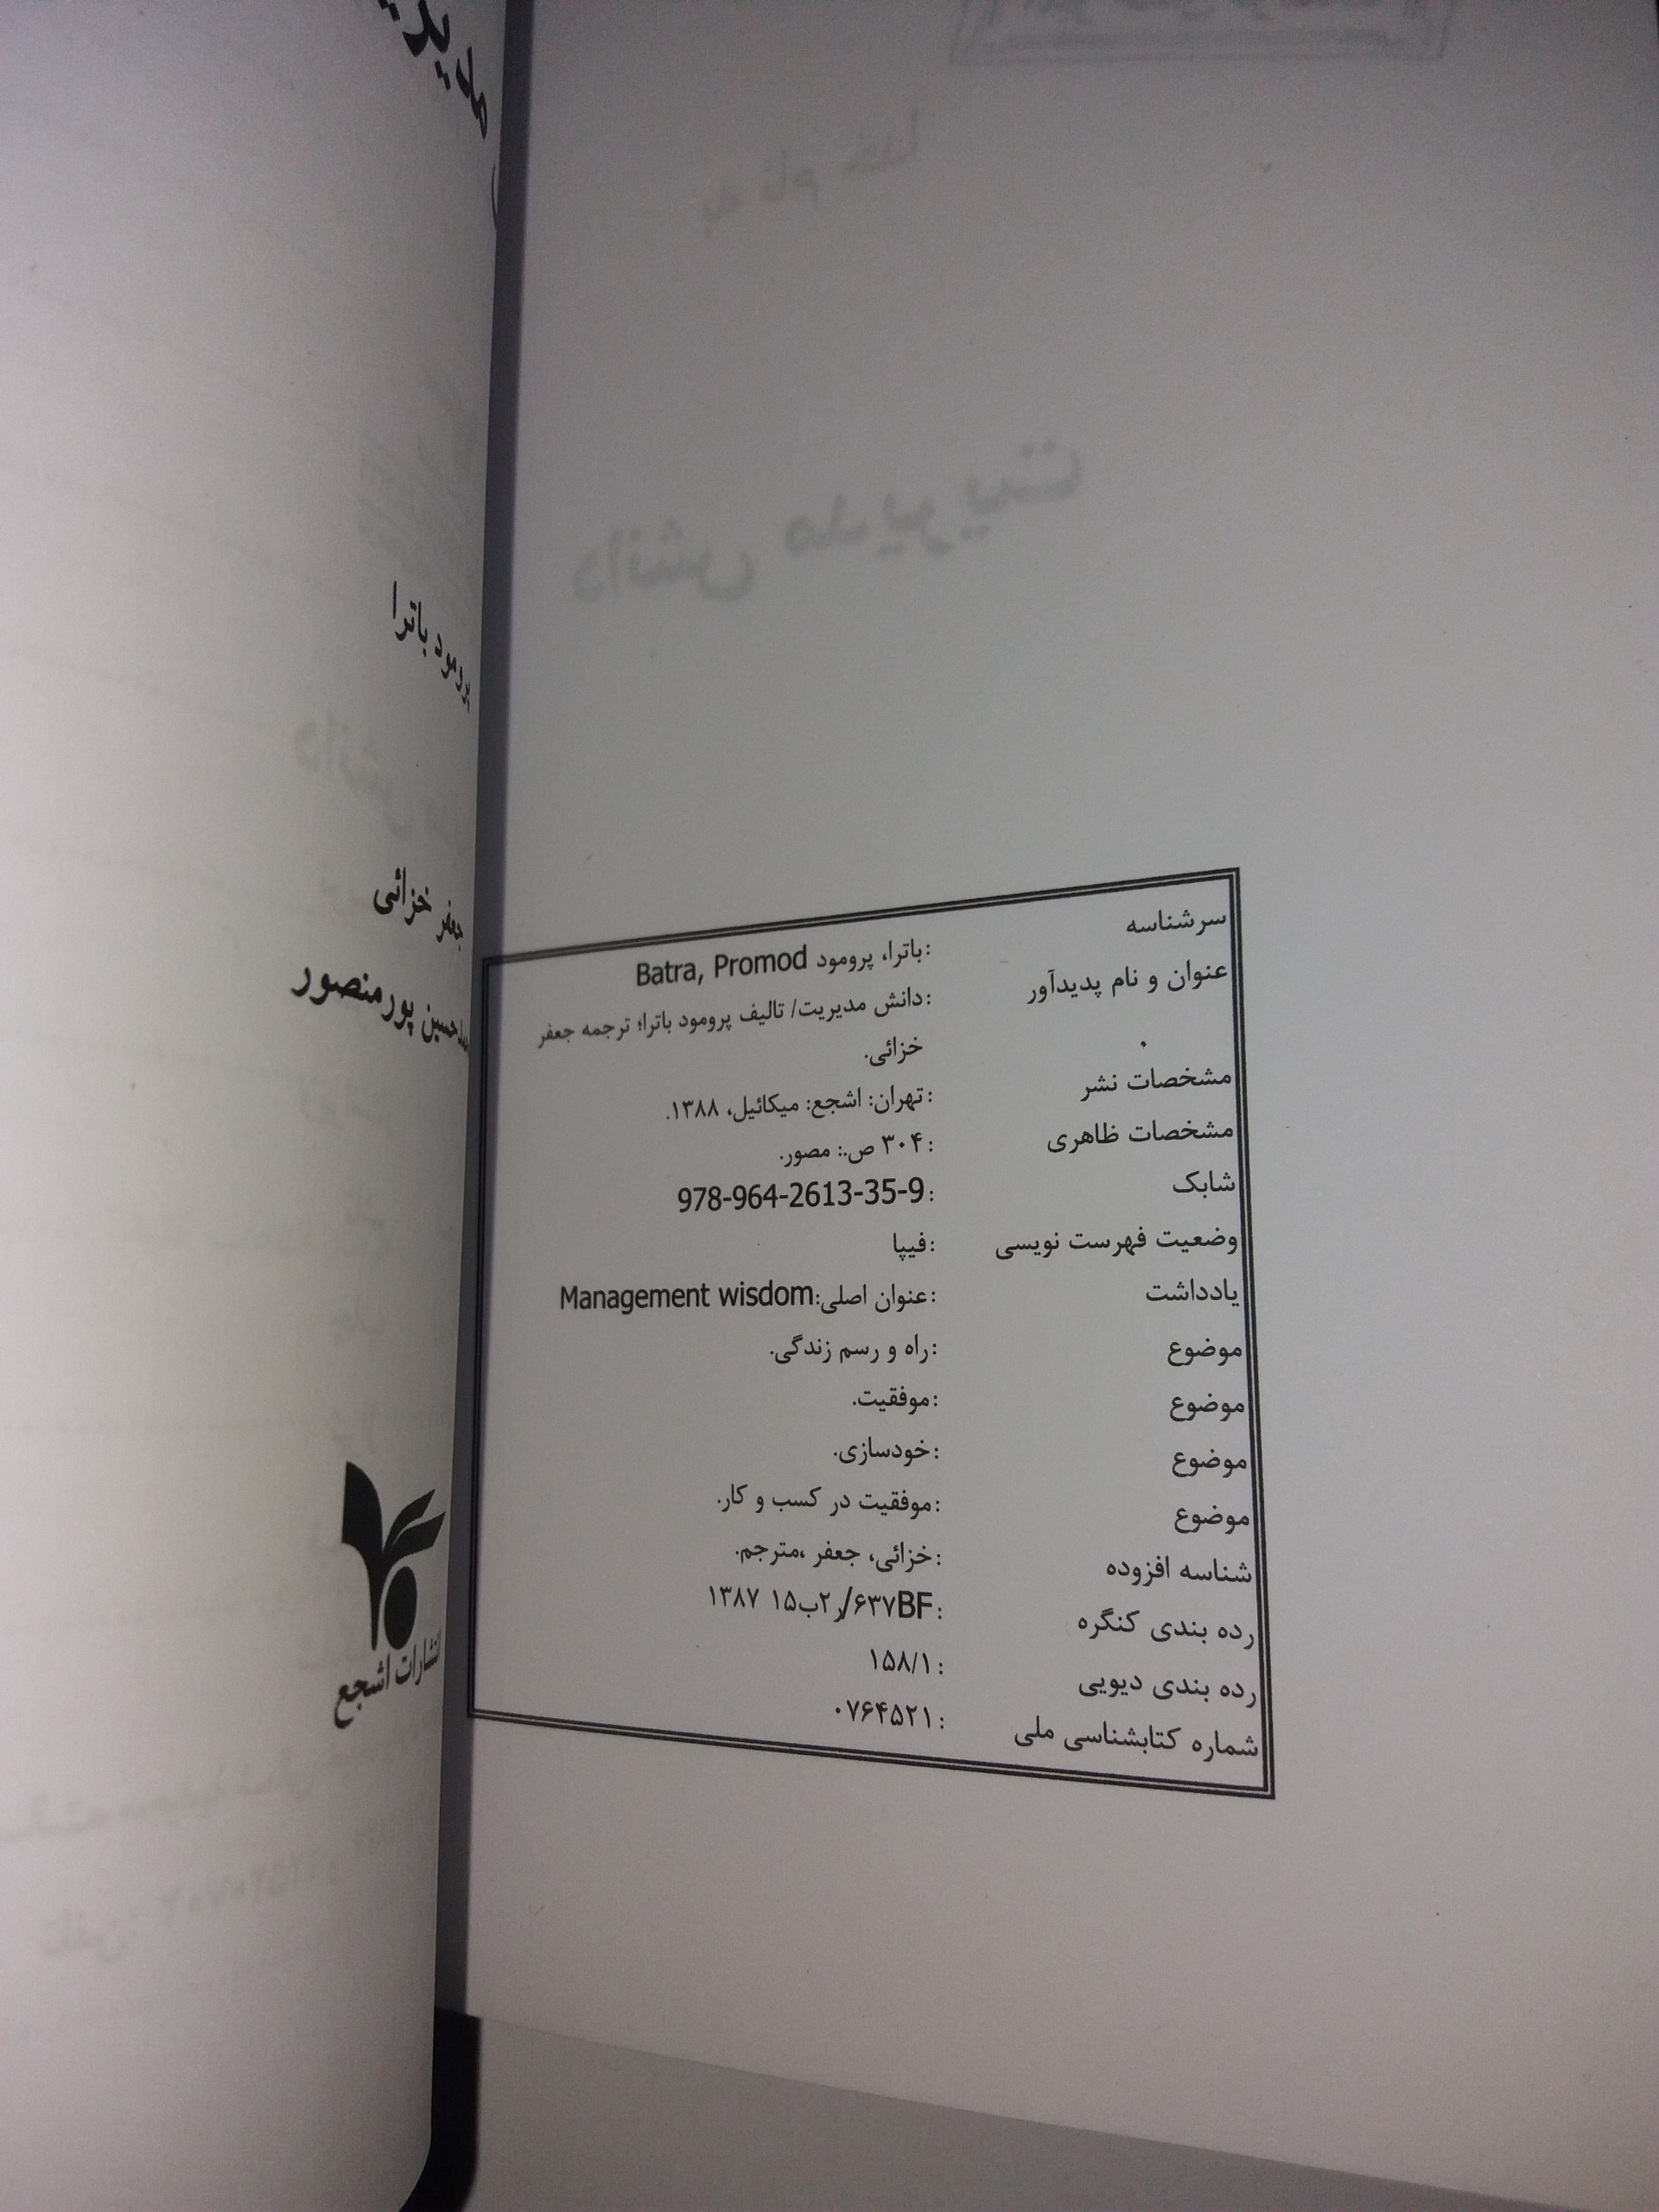 سرشناسه :باترا، پرومود Batra, Promod
عنوان و نام پدیدآور :دانش مدیریت/ تالیف پرومود باترا؛ ترجمه جعفر
خزائی.
مشخصات نشر :تهران: اشجع: میکائیل، ۱۳۸۸.
مشخصات ظاهری :۳۰۴ ص.: مصور.
شابک :978-964-2613-35-9
وضعیت فهرست نویسی :فیپا
یادداشت :عنوان اصلی:Management wisdom
موضوع :راه و رسم زندگی.
موضوع :موفقیت.
موضوع :خودسازی.
موضوع :موفقیت در کسب و کار.
شناسه افزوده :خزائی، جعفر ،مترجم.
رده بندی کنگره :۶۳۷BF/ر۲ب۱۵ ۱۳۸۷
رده بندی دیویی :۱۵۸/۱
شماره کتابشناسی ملی :۰۷۶۴۵۲۱
پرومود باترا
جعفر خزائی
حسین پورمنصور
انتشارات اشجع